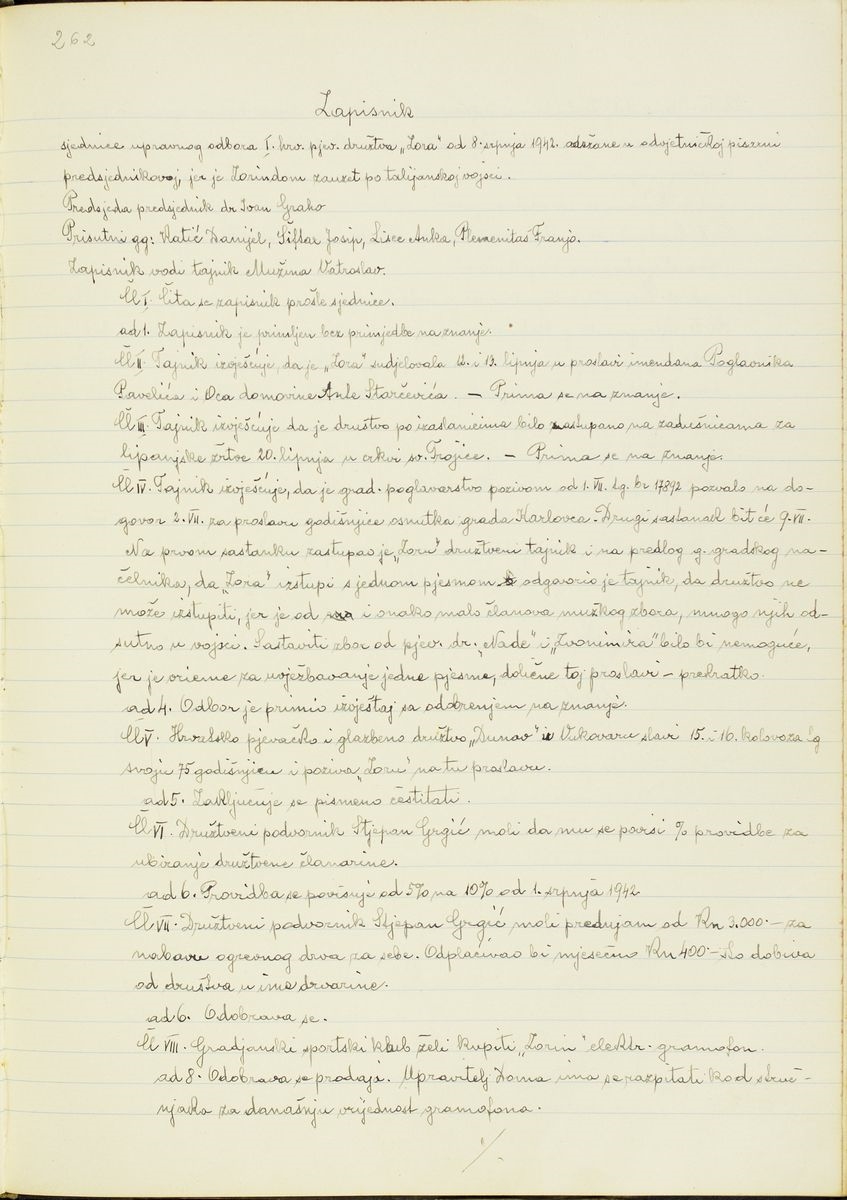 262
Zapisnik
sjednice upravnog odbora I. hrv. pjev. družtva „Zora" od 8. srpnja 1942. održane u odvjetničkoj pisarni
predsjednikovoj, jer je Zorindom zauzet po talijanskoj vojsci.
Predsjeda predsjednik dr Ivan Grako
Prisutni gg: Katić Danijel, Šiftar Josip, Lisec Anka, Plemenitaš Franjo.
Zapisnik vodi tajnik Mužina Vatroslav.
Čl I. Čita se zapisnik prošle sjednice.
ad 1. Zapisnik je primljen bez primjedbe na znanje.
Čl II. Tajnik izvješćuje, da je „Zora" sudjelovala 12. i 13. lipnja u proslavi imendana Poglavnika
Pavelića i Oca domovine Ante Starčevića. – Prima se na znanje.
Čl III. Tajnik izvješćuje da je društvo po izaslanicima bilo zastupano na zadušnicama za
lipanjske žrtve 20. lipnja u crkvi sv. Trojice. – Prima se na znanje.
Čl IV. Tajnik izvješćuje, da je grad. poglavarstvo pozivom od 1. VII. t.g. br 17892 pozvalo na do-
govor 2. VII. za proslavu godišnjice osnutka grada Karlovca. Drugi sastanak bit će 9. VII.
Na prvom sastanku zastupao je „Zoru" družtveni tajnik i na predlog g. gradskog na-
čelnika, da „Zora" iztupi s jednom pjesmom odgovorio je tajnik, da družtvo ne
može iztupiti, jer je od i onako malo članova muzkog zbora, mnogo njih od-
sutno u vojsci. Sastaviti zbor od pjev. dr. „Nade" i „Zvonimira" bilo bi nemoguće,
jer je vrieme za uvježbavanje jedne pjesme, dolične toj proslavi – prekratko.
ad 4. Odbor je primio izvještaj sa odobrenjem na znanje.
Čl V. Hrvatsko pjevačko i glazbeno družtvo „Dunav" u Vukovaru slavi 15. i 16. kolovoza tg
svoju 75 godišnjicu i poziva „Zoru" na tu proslavu.
ad 5. Zaključuje se pismeno čestitati.
Čl VI. Družtveni podvornik Stjepan Grgić moli da mu se povisi % providbe za
ubiranje družtvene članarine.
ad 6. Providba se povisuje od 5% na 10% od 1. srpnja 1942.
Čl VII. Družtveni podvornik Stjepan Grgić moli predujam od Kn 3.000.– za
nabavu ogrevnog drva za sebe. Odplaćivao bi mjesečno Kn 400.– što dobiva
od društva u ime drvarine.
ad 6. Odobrava se.
Čl VIII. Gradjanski sportski klub želi kupiti „Zorin" elektr. gramofon.
ad 8. Odobrava se prodaja. Upravitelj Doma ima se razpitati kod struč-
njaka za današnju vrijednost gramofona.
./.